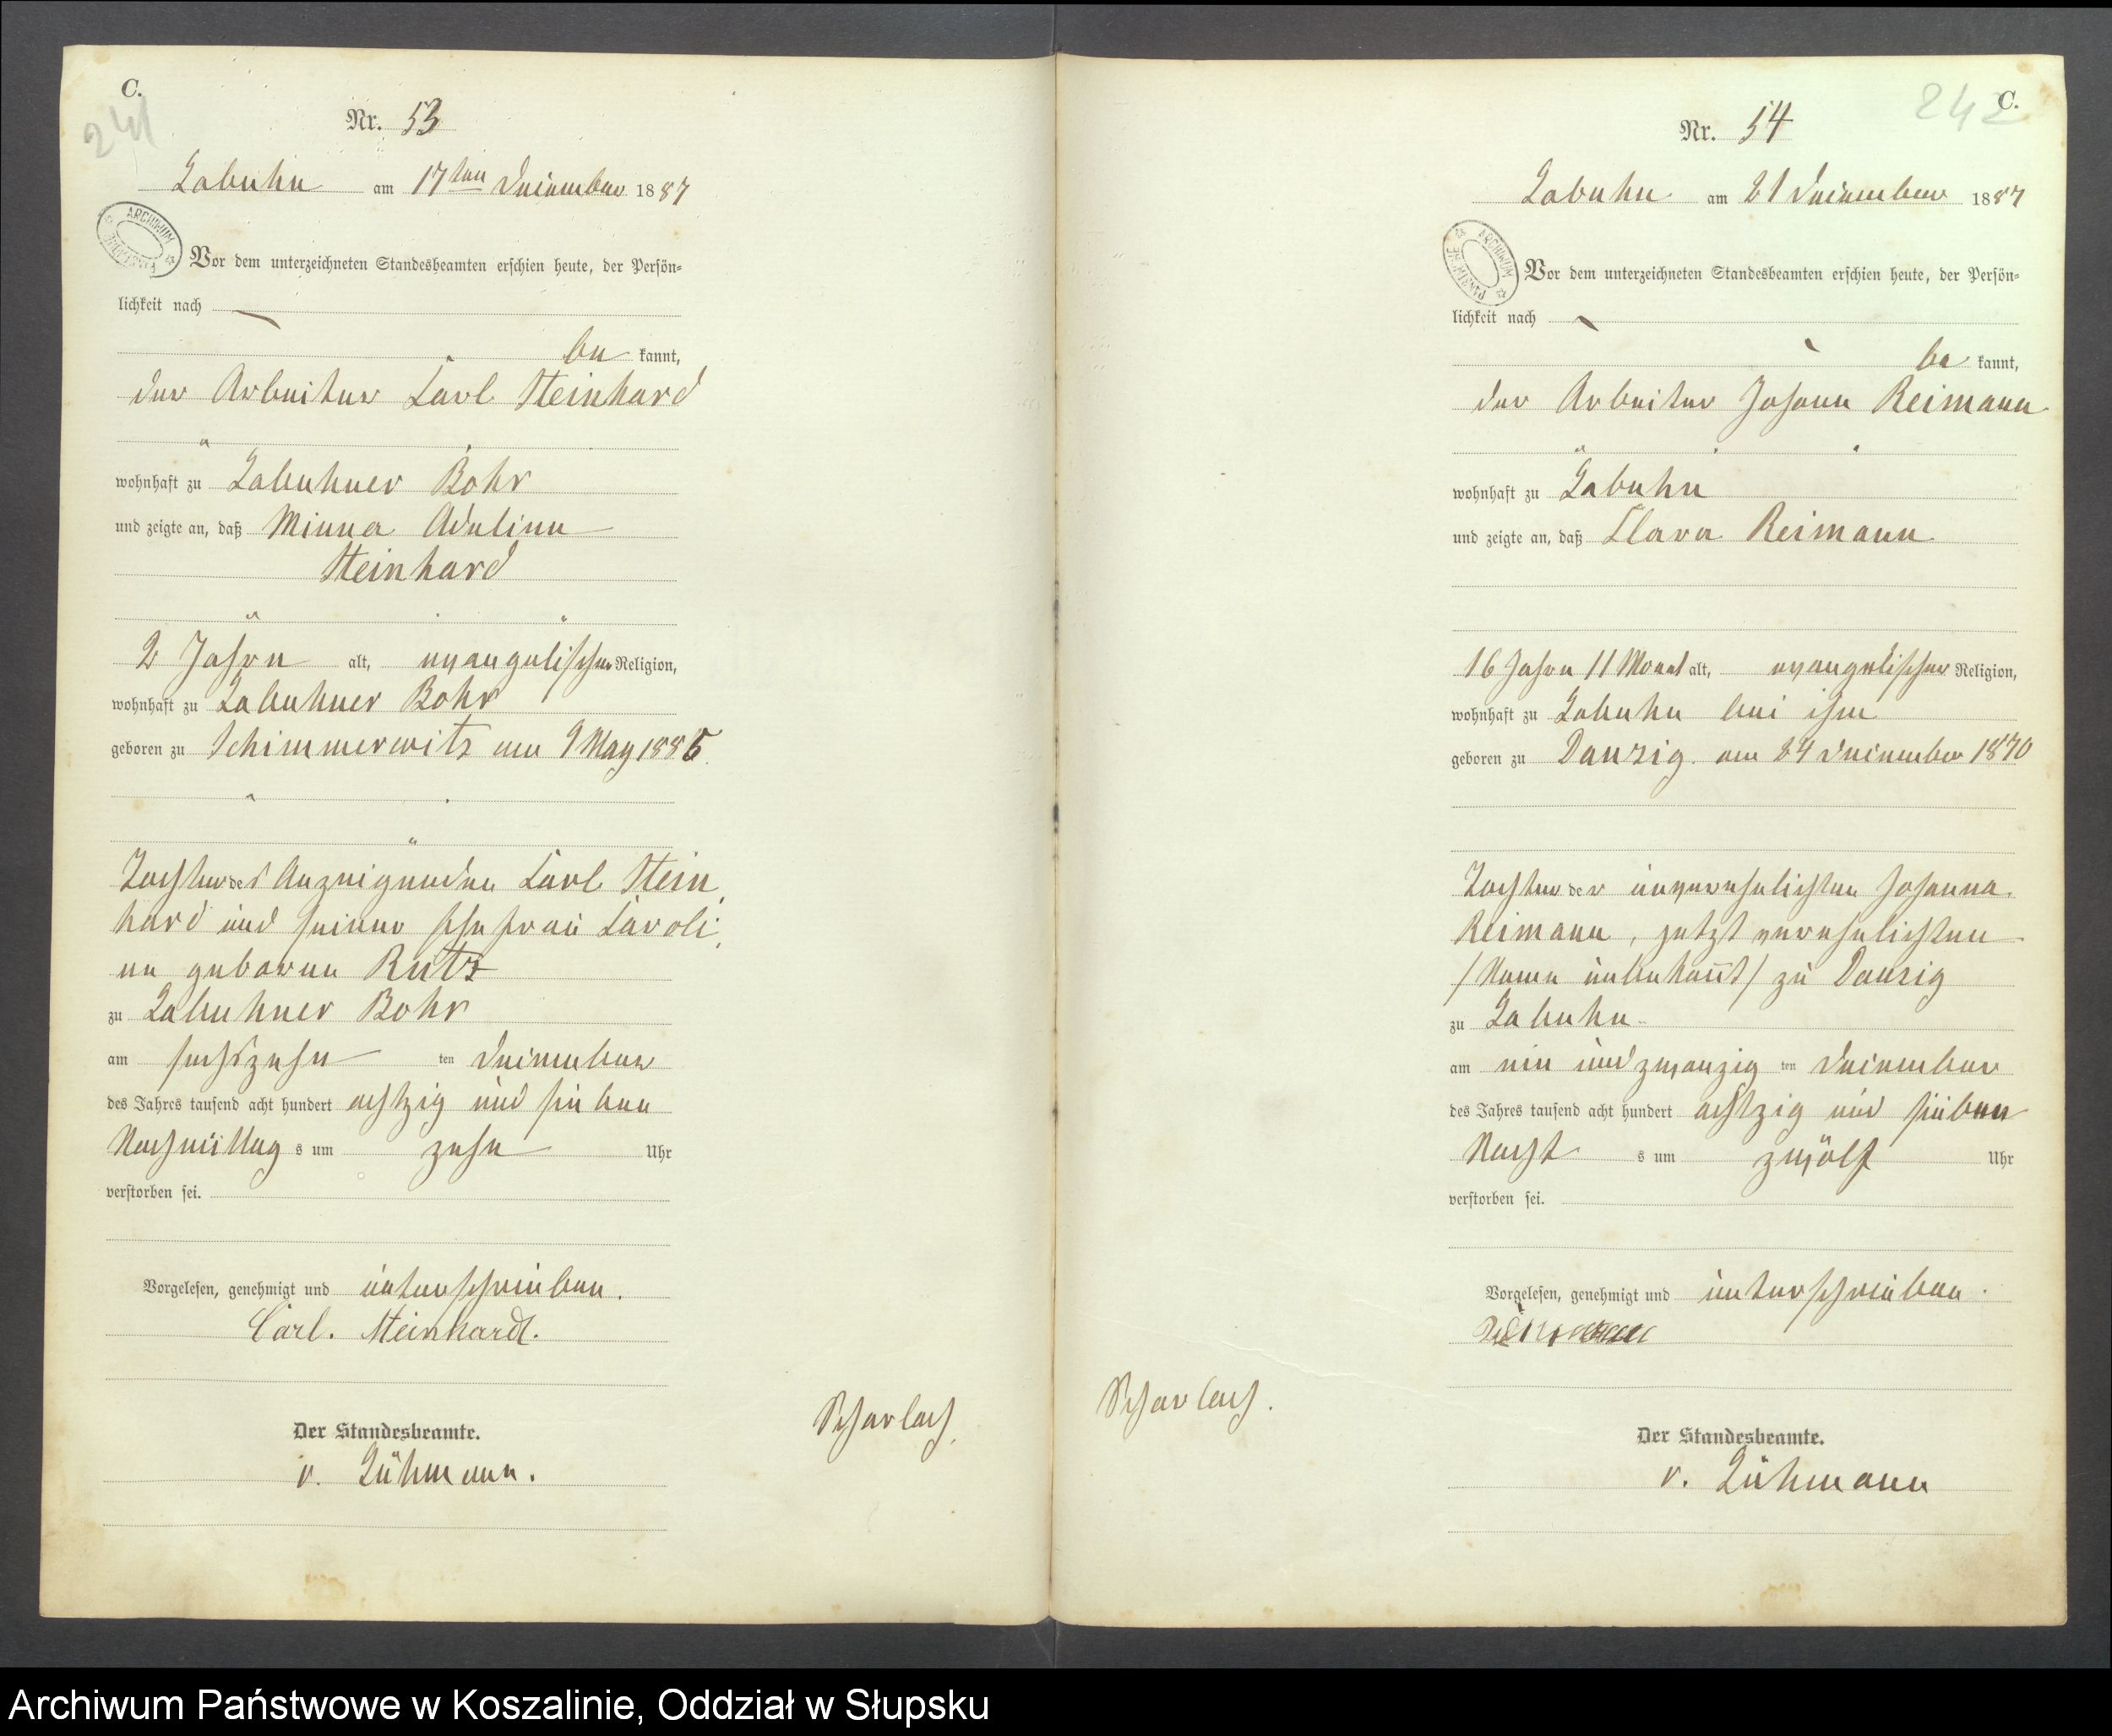 C.
241
Nr. 53
Labuhn am 17ten December 1887
ARCHIWUM
Vor dem unterzeichneten Standesbeamten erschien heute, der Persön=
lichkeit nach
be kannt,
der Arbeiter Carl Steinhard
wohnhaft zu Labuhner Bohr
und zeigte an, daß Minna Adeline
Steinhard
2 Jahre alt, evangelischer Religion,
wohnhaft zu Labuhner Bohr
geboren zu Schimmerwitz am 9 May 1885
Tochter des Anzeigenden Carl Stein
hard und seiner Ehefrau Caroli
ne geborene Rutz
zu Labuhner Bohr
am sechszehn ten December
des Jahres tausend acht hundert achtzig und sieben
Nachmittag s um zehn Uhr
verstorben sei.
Vorgelesen, genehmigt und unterschrieben.
Carl. Steinhardt.
Der Standesbeamte.
v. Lühmann.
Scharlach
C.
242
Nr. 54
Labuhn am 21 December 1887
ARCHIWUM PAŃSTWOWE
Vor dem unterzeichneten Standesbeamten erschien heute, der Persön=
lichkeit nach
be kannt,
der Arbeiter Johann Reimann
wohnhaft zu Labuhn
und zeigte an, daß Clara Reimann
16 Jahre 11 Monat alt, evangelischer Religion,
wohnhaft zu Labuhn bei ihm
geboren zu Danzig am 24 December 1870
Tochter der unverehelichten Johanna
Reimann, jetzt verehelichten
/Name unbekannt/ zu Danzig
zu Labuhn
am ein und zwanzig ten December
des Jahres tausend acht hundert achtzig und sieben
Nacht s um zwölf Uhr
verstorben sei.
Vorgelesen, genehmigt und unterschrieben.
Scharlach.
Der Standesbeamte.
v. Lühmann
Archiwum Państwowe w Koszalinie, Oddział w Słupsku